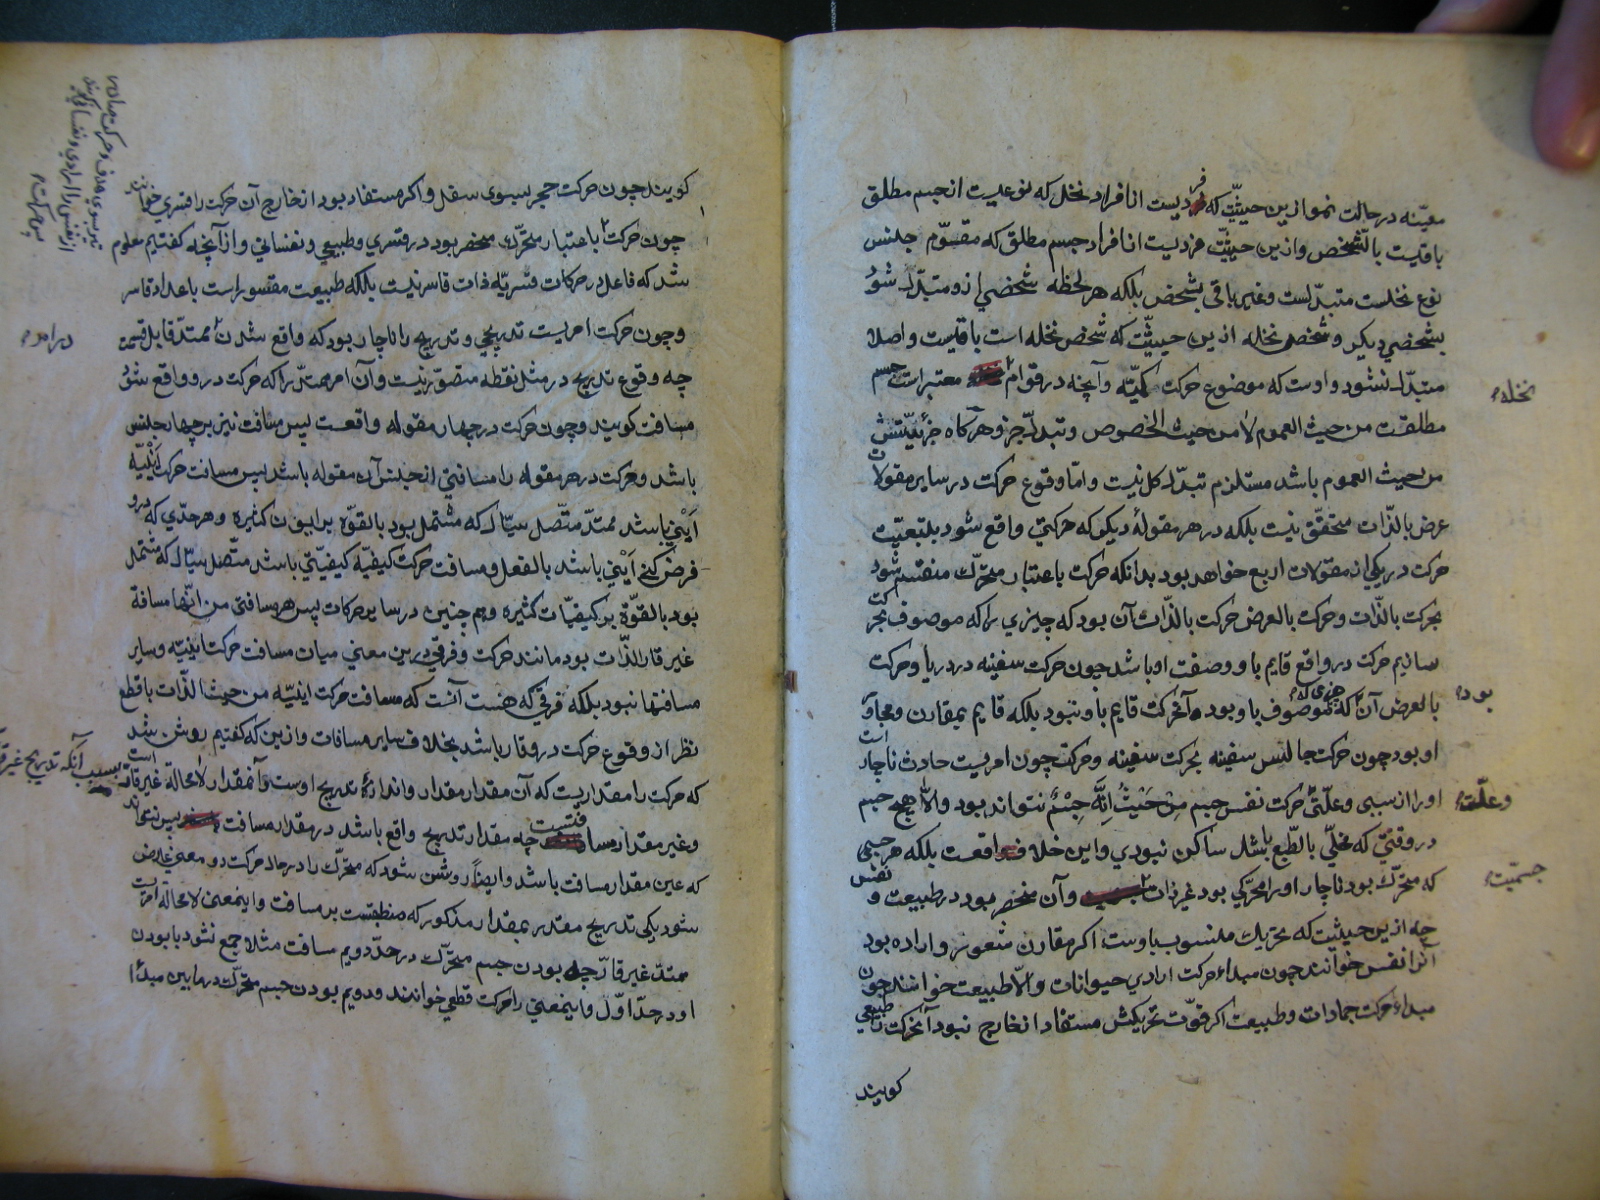 معیّنه در حالت نمو ازین حیثیّت که فردیست از افراد نخل که نوعیست از جسم مطلق
باقیست بالتّشخص و ازین حیثیّت فردیست از افراد جسم مطلق که مقسوّم جنس
نوع نخلست متبدّلست و غیر باقی بشخص بلکه هر لحظه شخصی ازو متبدّل شود
بشخصی دیگر و شخص نخله ازین حیثیّت که شخص نخله است باقیست و اصلا
متبدّل نشود و اوست که موضوع حرکت کمیّه و آنچه در قوام معتبر است جسم
نخله
مطلقست من حیث العموم لا من حیث الخصوص و تبدّل جز و هرگاه جزئیّتش
من حیث العموم باشد مستلزم تبدّل کل نیست و امّا وقوع حرکت در سایر مقولات
عرض بالذّات متحقّق نیست بلکه در هر مقولهٔ دیگر که حرکتی واقع شود بتبعیّت
حرکت در یکی از مقولات اربع خواهد بود بدانکه حرکت باعتبار متحرّک منقسم شود
بحرکت بالذّات و حرکت بالعرض حرکت بالذّات آن بود که چیزی را که موصوف بحرکت
سازیم حرکت در واقع قایم باو و وصفت او باشد چون حرکت سفینه در دریا و حرکت
بالعرض آن که چیزی که موصوف باو بود آنحرکت قایم باو نبود بلکه قایم بمقارن و مجاور
بود
او بود چون حرکت جالس سفینه بحرکت سفینه و حرکت چون امریست حادث ناچار است
او را از سببی و علّتی و علّت حرکت نفس جسم مِنْ حَیْثُ اِنَّهُ جِسْمٌ نتواند بود و الاّ هیچ جسم
در وقتی که مخلّی بالطّبع باشد ساکن نبودی و این خلاف واقعست بلکه هر جسمی
که متحرّک بود ناچار او را محرّکی بود غیر ذات جسمیّت و آن منحصر بود در طبیعت و نفس
چه ازین حیثیت که تحریک منسوب باوست اگر مقارن شعور و اراده بود
آنرا نفس خوانند چون مبداء حرکت ارادی حیوانات و الاّ طبیعت خوانند چون
مبداء حرکت جمادات و طبیعت اگر قوّت تحریکش مستفاد از خارج نبود آنحرکت را طبیعی
کویند
کویند چون حرکت حجر بسوی سفل و اگر مستفاد بود از خارج آن حرکت را قسری خوانند
چون حرکت باعتبار متحرّک منحصر بود در قسری و طبیعی و نفسانی و از آنچه کفتیم معلوم
شد که فاعل در حرکات قسریّه ذات قاسر نیست بلکه طبیعت مقسور است باعداد قاسر
و چون حرکت امریست تدریجی و تدریج را ناچار بود که واقع شدن ممتدّ قابل قسمت
در امر
چه وقوع تدریج در مثل نقطه متصوّر نیست و آن امر ممتدّ را که حرکت در و واقع شود
مسافت کویند و چون حرکت در چهار مقوله واقعست پس مسافت نیز بر چهار جنس
باشد و حرکت در هر مقوله را مسافتی از جنس آن مقوله باشد پس مسافت حرکت اَیْنیّه
اَیْنی باشد ممتدّ متّصل سیّال که مشتمل بود بالقوّه بر ایون کثیره و هر حدّی که درو
فرض کنی اَیْنی باشد بالفعل و مسافت حرکت کیفیّه کیفیّتی باشد متّصل سیّال که مشتمل
بود بالقوّة بر کیفیّات کثیره و هم چنین در سایر حرکات پس هر مسافتی من انّها مسافة
غیر قار الذّات بود مانند حرکت و فرقی درین معنی میان مسافت حرکت اینیّه و سایر
مسافتها نبود بلکه فرقی که هست آنست که مسافت حرکت اینیّه من حیث الذّات با قطع
نظر از وقوع حرکت درو قار باشد بخلاف سایر مسافات و ازین که کفتیم روشن شد
که حرکت را مقداریست که آن مقدار مقدار و اندازهٔ تدریج اوست و آنمقدار لامحالة غیر قار است
بسبب آنکه تدریج غیر
و غیر مقدار مسافتست چه مقدار تدریج واقع باشد در مقدار مسافت پس نتواند
که عین مقدار مسافت باشد و ایضاً روشن شود که متحرّک را در حال حرکت دو معنی عارض
شود یکی تدریج مقدر بمقدار مذکور که منطبقست بر مسافت و اینمعنی لامحالة امریست
ممتدّ غیر قارّ چه بودن جسم متحرّک در حدّ دویم مسافت مثلا جمع نشود با بودن
او در حدّ اوّل و اینمعنی را حرکت قطعی خوانند و دویم بودن جسم متحرّک در مابین مبدأ